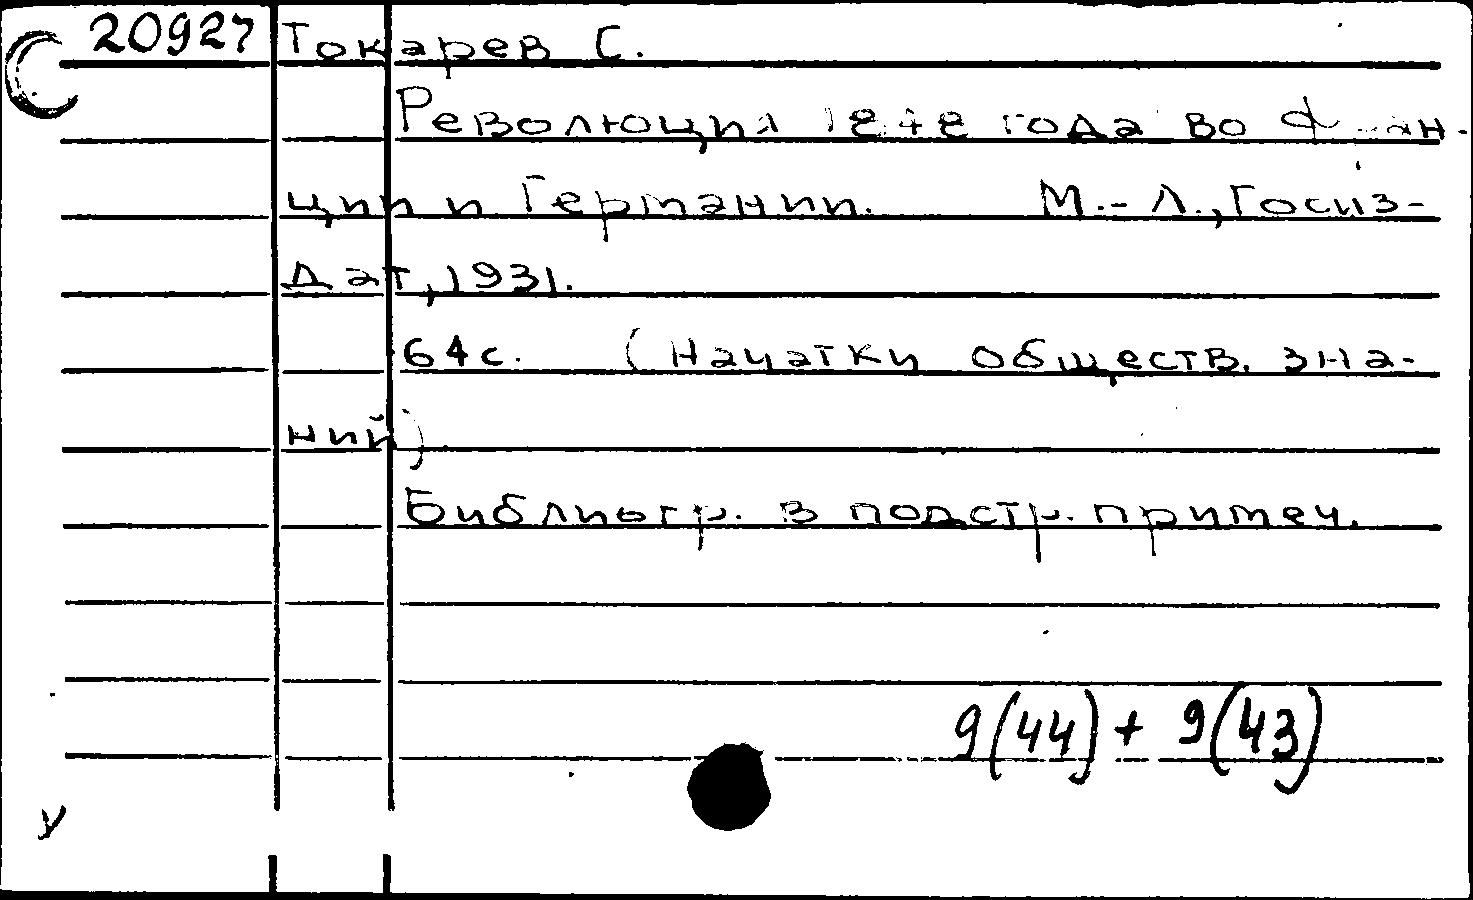 20927 Токарев С.
Революция 1848 года во Фран-
ции и Германии. М.-Л., Госиз-
дат, 1931.
64с. (Начатки обществ. зна-
ний)
Библиогр. в подстр. примеч.
9(44) + 9(43)
у